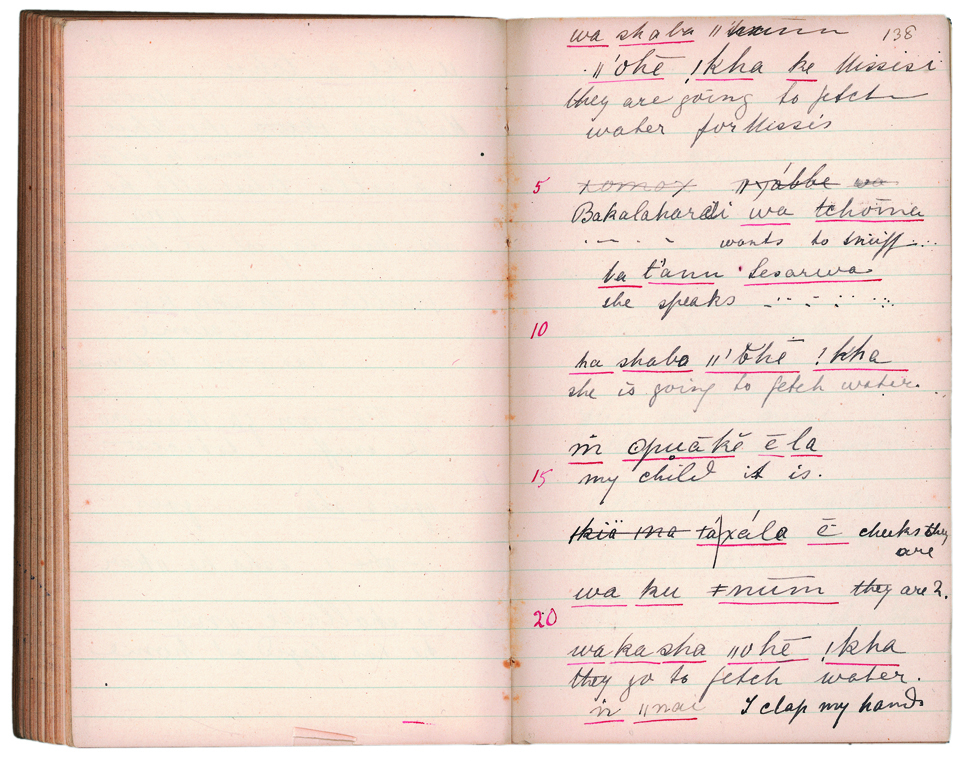 wa shaba 138
ǁ'ohē ǃkha ke Missisi
they are going to fetch
water for Missis
5
Bakalahardi wa tchoina
wants to snuff
ba t'ann Sesarwa
she speaks
10
ha shaba ǁ'ohē ǃkha
she is going to fetch water.
ē la
15 my child it is.
táxála ē cheeks they
are
wa ku ǂnūm they are 2.
20
wa ka sha ǁohē ǃkha
they go to fetch water.
ṅ ǁnai I clap my hands